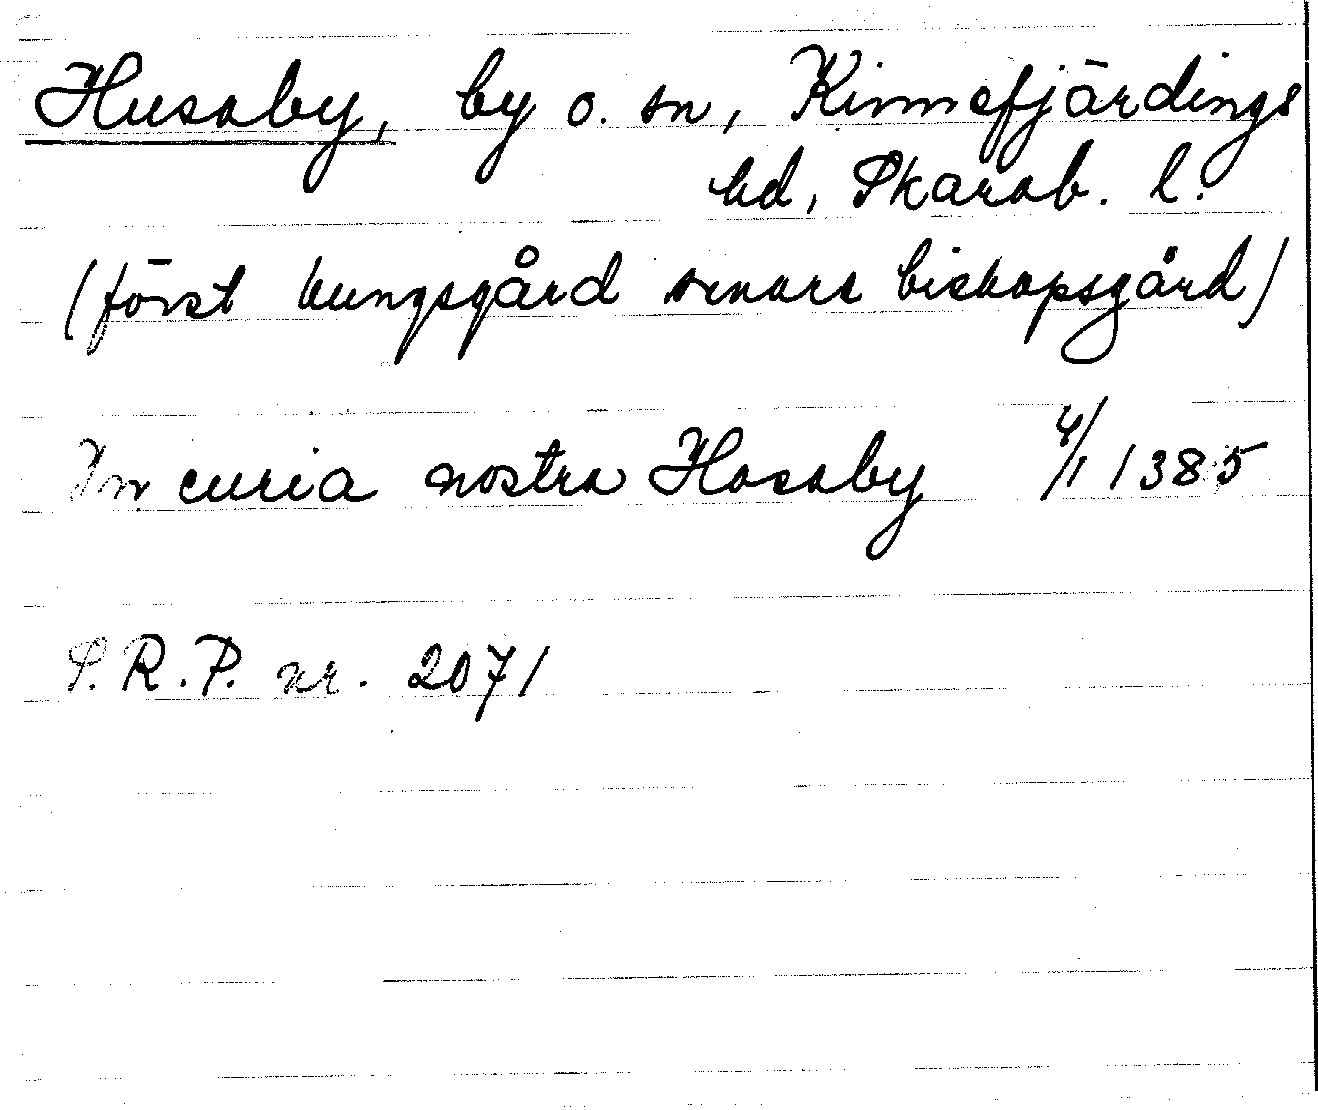 Husaby, by o. sn, Kinnefjärdings
hd, Skarab. l.
(först kungsgård senare biskopsgård)
In curia nostra Hosaby 4/1 1385
S.R.P. nr. 2071